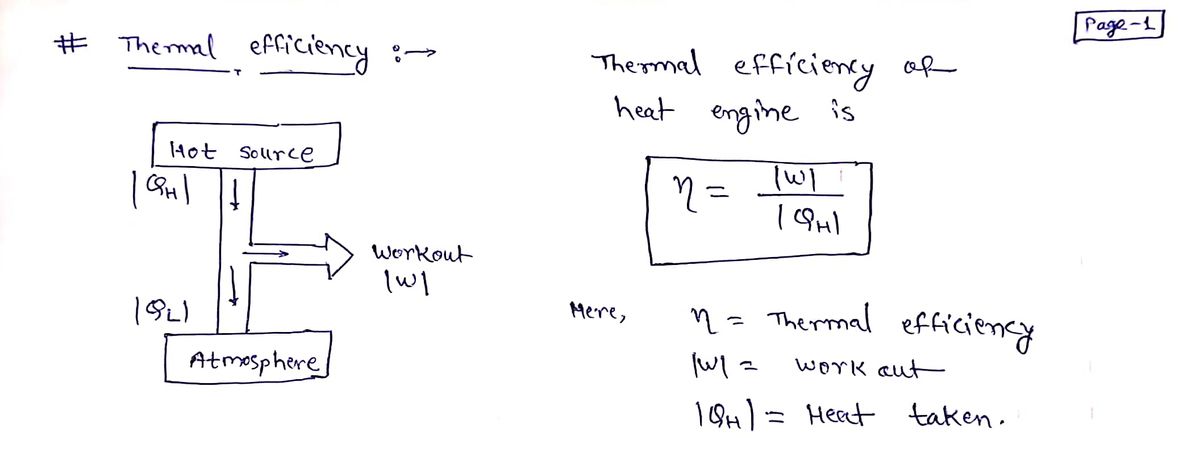 Page-1
# Thermal efficiency :→
Hot source
|QH|
Workout
|W|
|QL|
Atmosphere
Thermal efficiency of
heat engine is
η = |W| / |QH|
Here,
η = Thermal efficiency
|W| = work out
|QH| = Heat taken.